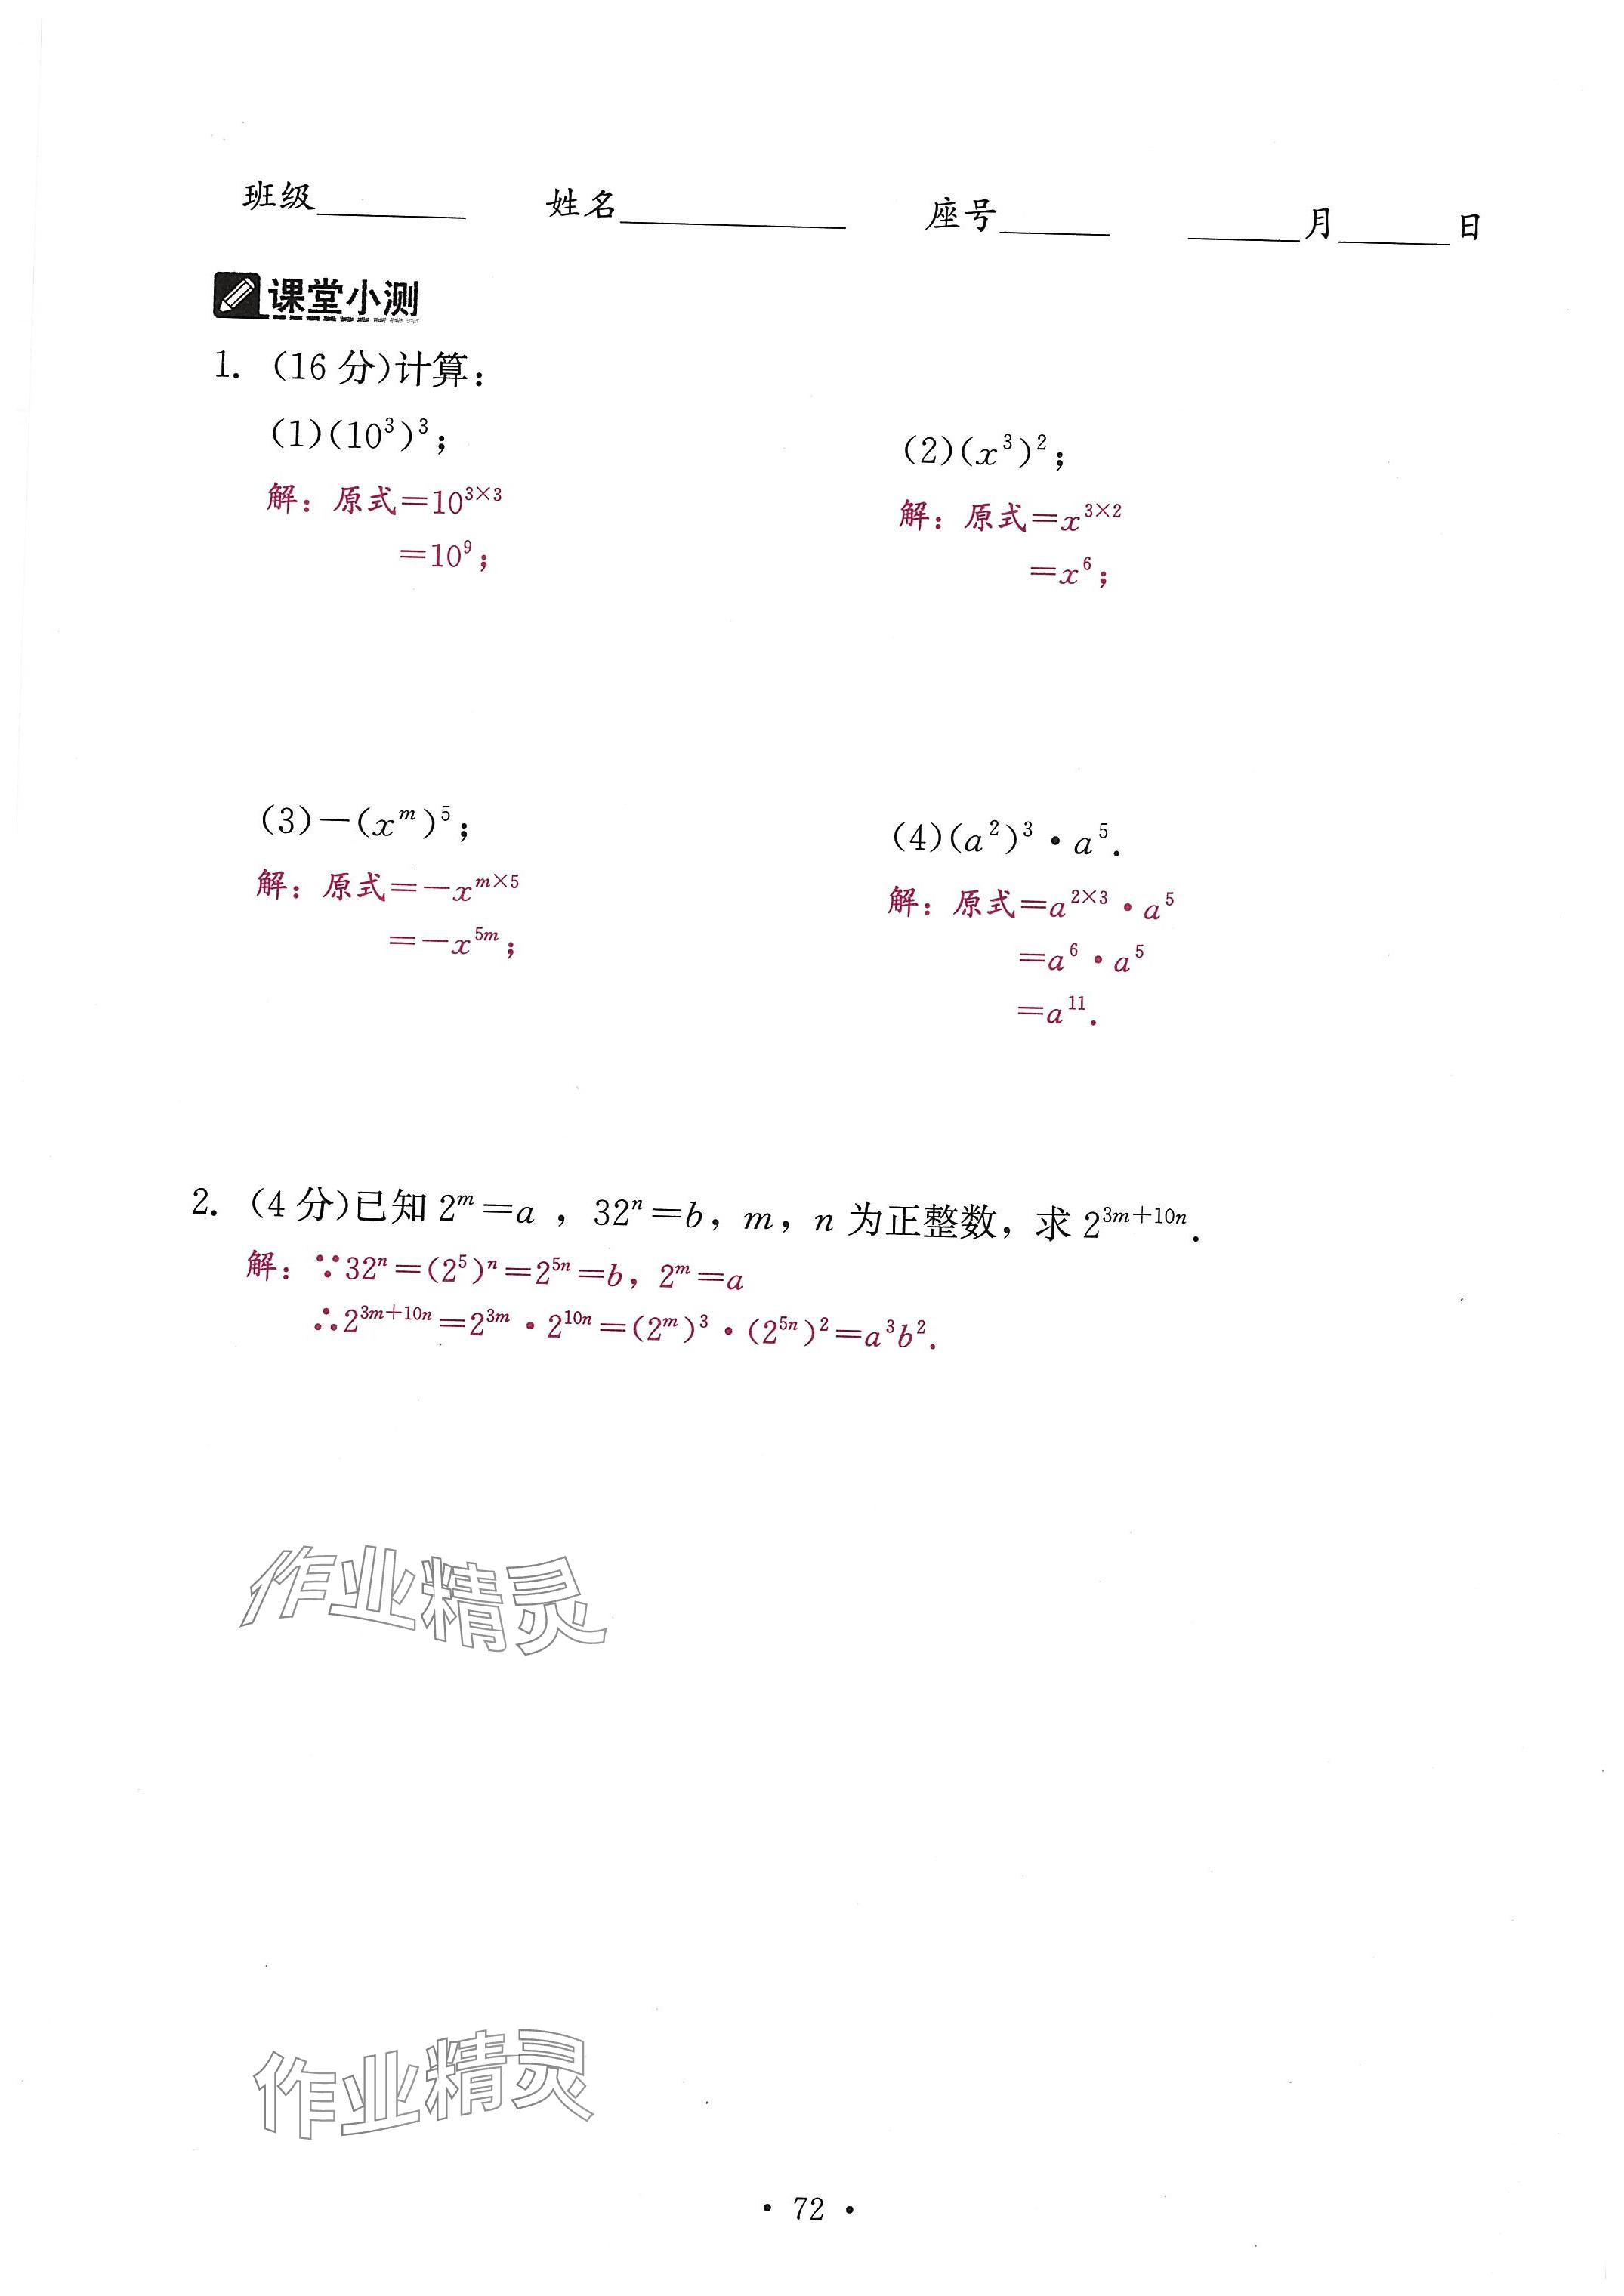 班级________ 姓名____________ 座号______ ______月______日
课堂小测
1. (16 分)计算:
(1)(10³)³; (2)(x³)²;
解: 原式=10³ˣ³ 解: 原式=x³ˣ²
=10⁹; =x⁶;
(3)-(xᵐ)⁵; (4)(a²)³·a⁵.
解: 原式=-x^{m×5} 解: 原式=a^{2×3}·a⁵
=-x^{5m}; =a⁶·a⁵
=a¹¹.
2. (4 分)已知 2ᵐ=a , 32ⁿ=b, m, n 为正整数, 求 2^{3m+10n}.
解: ∵32ⁿ=(2⁵)ⁿ=2^{5n}=b, 2ᵐ=a
∴2^{3m+10n}=2^{3m}·2^{10n}=(2ᵐ)³·(2^{5n})²=a³b².
作业精灵
作业精灵
· 72 ·